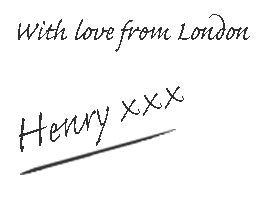 With love from London
Henry xxx